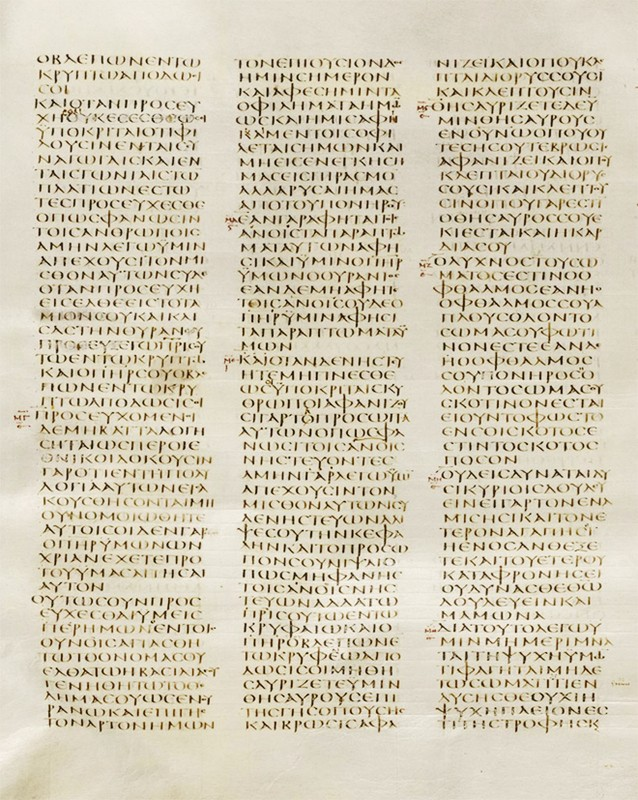 ΟΒΛΕΠΩΝΕΝΤΩ
ΚΡΥΠΤΩΑΠΟΔΩϹΙ
ϹΟΙ
ΚΑΙΟΤΑΝΠΡΟϹΕΥ
ΧΗΟΥΚΕϹΕϹΘΕΩϹΟΙ
ΫΠΟΚΡΙΤΑΙΟΤΙΦΙ
ΛΟΥϹΙΝΕΝΤΑΙϹϹΥ
ΝΑΓΩΓΑΙϹΚΑΙΕΝ
ΤΑΙϹΓΩΝΙΑΙϹΤΩ
ΠΛΑΤΙΩΝΕϹΤΩ
ΤΕϹΠΡΟϹΕΥΧΕϹΘΕ
ΟΠΩϹΦΑΝΩϹΙΝ
ΤΟΙϹΑΝΘΡΩΠΟΙϹ
ΑΜΗΝΛΕΓΩΫΜΙΝ
ΑΠΕΧΟΥϹΙΤΟΝΜΙ
ϹΘΟΝΑΥΤΩΝϹΥΔΕ
ΟΤΑΝΠΡΟϹΕΥΧΗ
ΕΙϹΕΛΘΕΕΙϹΤΟΤΑ
ΜΙΟΝϹΟΥΚΑΙΚΛΙ
ϹΑϹΤΗΝΘΥΡΑΝϹΟΥ
ΠΡΟϹΕΥΞΕΤΩΠΡΙϹΟΥ
ΤΩΕΝΤΩΚΡΥΠΤΩ
ΚΑΙΟΠΗΡϹΟΥΟΒΛΕ
ΠΩΝΕΝΤΩΚΡΥ
ΠΤΩΑΠΟΔΩϹΕΙϹΟΙ
ΠΡΟϹΕΥΧΟΜΕΝΟΙ
ΔΕΜΗΒΑΤΤΑΛΟΓΗ
ϹΗΤΑΙΩϹΠΕΡΟΙΕ
ΘΝΙΚΟΙΔΟΚΟΥϹΙΝ
ΓΑΡΟΤΙΕΝΤΗΠΟΛΥ
ΛΟΓΙΑΑΥΤΩΝΕΙϹΑ
ΚΟΥϹΘΗϹΟΝΤΑΙΜΗ
ΟΥΝΟΜΟΙΩΘΗΤΕ
ΑΥΤΟΙϹΟΙΔΕΝΓΑΡ
ΟΠΗΡΫΜΩΝΩΝ
ΧΡΙΑΝΕΧΕΤΕΠΡΟ
ΤΟΥΫΜΑϹΑΙΤΗϹΑΙ
ΑΥΤΟΝ
ΟΥΤΩϹΟΥΝΠΡΟϹ
ΕΥΧΕϹΘΑΙΫΜΕΙϹ
ΠΕΡΗΜΩΝΕΝΤΟΙϹ
ΟΥΝΟΙϹΑΓΙΑϹΘΗ
ΤΩΤΟΟΝΟΜΑϹΟΥ
ΕΛΘΑΤΩΗΒΑϹΙΛΙΑϹΟΥ
ΓΕΝΗΘΗΤΩΤΟΘΕ
ΛΗΜΑϹΟΥΩϹΕΝΟΥ
ΡΑΝΩΚΑΙΕΠΙΓΗϹ
ΤΟΝΑΡΤΟΝΗΜΩΝ
ΤΟΝΕΠΙΟΥϹΙΟΝΔΟϹ
ΗΜΙΝϹΗΜΕΡΟΝ
ΚΑΙΑΦΕϹΗΜΙΝΤΑ
ΟΦΙΛΗΜΑΤΑΗΜΩ
ΩϹΚΑΙΗΜΙϹΑΦΗ
ΚΑΜΕΝΤΟΙϹΟΦΙ
ΛΕΤΑΙϹΗΜΩΝΚΑΙ
ΜΗΕΙϹΕΝΕΓΚΗϹΗ
ΜΑϹΕΙϹΠΙΡΑϹΜΟ
ΑΛΛΑΡΥϹΑΙΗΜΑϹ
ΑΠΟΤΟΥΠΟΝΗΡΟΥ
ΕΑΝΓΑΡΑΦΗΤΑΙΤΟΙϹ
ΑΝΟΙϹΤΑΠΑΡΑΠΤΩ
ΜΑΤΑΑΥΤΩΝΑΦΗ
ϹΙΚΑΙΫΜΙΝΟΠΗΡ
ΫΜΩΝΟΟΥΡΑΝΙΟϹ
ΕΑΝΔΕΜΗΑΦΗΤΕ
ΤΟΙϹΑΝΟΙϹΟΥΔΕΟ
ΠΗΡΫΜΙΝΑΦΗϹΙ
ΤΑΠΑΡΑΠΤΩΜΑΤΑΫ
ΜΩΝ
ΚΑΙΟΤΑΝΔΕΝΗϹΤΕΥ
ΗΤΕΜΗΓΙΝΕϹΘΕ
ΩϹΥΠΟΚΡΙΤΑΙϹΚΥ
ΘΡΩΠΟΙΑΦΑΝΙΖΟΥ
ϹΙΓΑΡΤΟΠΡΟϹΩΠΟ
ΑΥΤΩΝΟΠΩϹΦΑ
ΝΩϹΙΤΟΙϹΑΝΟΙϹ
ΝΗϹΤΕΥΟΝΤΕϹ
ΑΜΗΝΓΑΡΛΕΓΩΫΜΙ
ΑΠΕΧΟΥϹΙΝΤΟΝ
ΜΙϹΘΟΝΑΥΤΩΝϹΥ
ΔΕΝΗϹΤΕΥΩΝΑΛΙ
ΨΕϹΟΥΤΗΝΚΕΦΑ
ΛΗΝΚΑΙΤΟΠΡΟϹΩ
ΠΟΝϹΟΥΝΙΨΑΙΟ
ΠΩϹΜΗΦΑΝΗϹ
ΤΟΙϹΑΝΟΙϹΝΗϹ
ΤΕΥΩΝΑΛΛΑΤΩ
ΠΡΙϹΟΥΤΩΕΝΤΩ
ΚΡΥΦΑΙΩΚΑΙΟ
ΠΗΡΟΒΛΕΠΩΝΕ
ΤΩΚΡΥΦΕΩΑΠΟ
ΔΩϹΙϹΟΙΜΗΘΗ
ϹΑΥΡΙΖΕΤΕΫΜΙΝ
ΘΗϹΑΥΡΟΥϹΕΠΙ
ΤΗϹΓΗϹΟΠΟΥϹΗϹ
ΚΑΙΒΡΩϹΙϹΑΦΑ
ΝΙΖΕΙΚΑΙΟΠΟΥΚΛΕ
ΠΤΑΙΔΙΟΡΥϹϹΟΥϹΙ
ΚΑΙΚΛΕΠΤΟΥϹΙΝ
ΘΗϹΑΥΡΙΖΕΤΕΔΕΫ
ΜΙΝΘΗϹΑΥΡΟΥϹ
ΕΝΟΥΝΩΟΠΟΥΟΥ
ΤΕϹΗϹΟΥΤΕΒΡΩϹΙϹ
ΑΦΑΝΙΖΕΙΚΑΙΟΠΟΥ
ΚΛΕΠΤΑΙΟΥΔΙΟΡΥϹ
ϹΟΥϹΙΚΑΙΚΛΕΠΤΟΥ
ϹΙΝΟΠΟΥΓΑΡΕϹΤΙ
ΟΘΗϹΑΥΡΟϹϹΟΥΕ
ΚΙΕϹΤΑΙΚΑΙΗΚΑΡ
ΔΙΑϹΟΥ
ΟΛΥΧΝΟϹΤΟΥϹΩ
ΜΑΤΟϹΕϹΤΙΝΟΟ
ΦΘΑΛΜΟϹΕΑΝΗΟ
ΟΦΘΑΛΜΟϹϹΟΥΑ
ΠΛΟΥϹΟΛΟΝΤΟ
ϹΩΜΑϹΟΥΦΩΤΙ
ΝΟΝΕϹΤΕΕΑΝΔΕ
ΗΟΟΦΘΑΛΜΟϹ
ϹΟΥΠΟΝΗΡΟϹΟ
ΛΟΝΤΟϹΩΜΑϹΟΥ
ϹΚΟΤΙΝΟΝΕϹΤΑΙ
ΕΙΟΥΝΤΟΦΩϹΤΟ
ΕΝϹΟΙϹΚΟΤΟϹΕ
ϹΤΙΝΤΟϹΚΟΤΟϹ
ΠΟϹΟΝ
ΟΥΔΕΙϹΔΥΝΑΤΑΙΔΥ
ϹΙΚΥΡΙΟΙϹΔΟΥΛΕΥ
ΕΙΝΕΙΓΑΡΤΟΝΕΝΑ
ΜΙϹΗϹΙΚΑΙΤΟΝΕ
ΤΕΡΟΝΑΓΑΠΗϹΙ
ΗΕΝΟϹΑΝΘΕΞΕ
ΤΕΚΑΙΤΟΥΕΤΕΡΟΥ
ΚΑΤΑΦΡΟΝΗϹΕΙ
ΟΥΔΥΝΑϹΘΕΘΩ
ΔΟΥΛΕΥΕΙΝΚΑΙ
ΜΑΜΩΝΑ
ΔΙΑΤΟΥΤΟΛΕΓΩΫ
ΜΙΝΜΗΜΕΡΙΜΝΑ
ΤΑΙΤΗΨΥΧΗΫΜΩ
ΤΙΦΑΓΗΤΑΙΜΗΔΕ
ΤΩϹΩΜΑΤΙΤΙΕΝ
ΔΥϹΗϹΘΕΟΥΧΙΗ
ΨΥΧΗΠΛΕΙΟΝΕϹ
ΤΙΤΗϹΤΡΟΦΗϹΚ